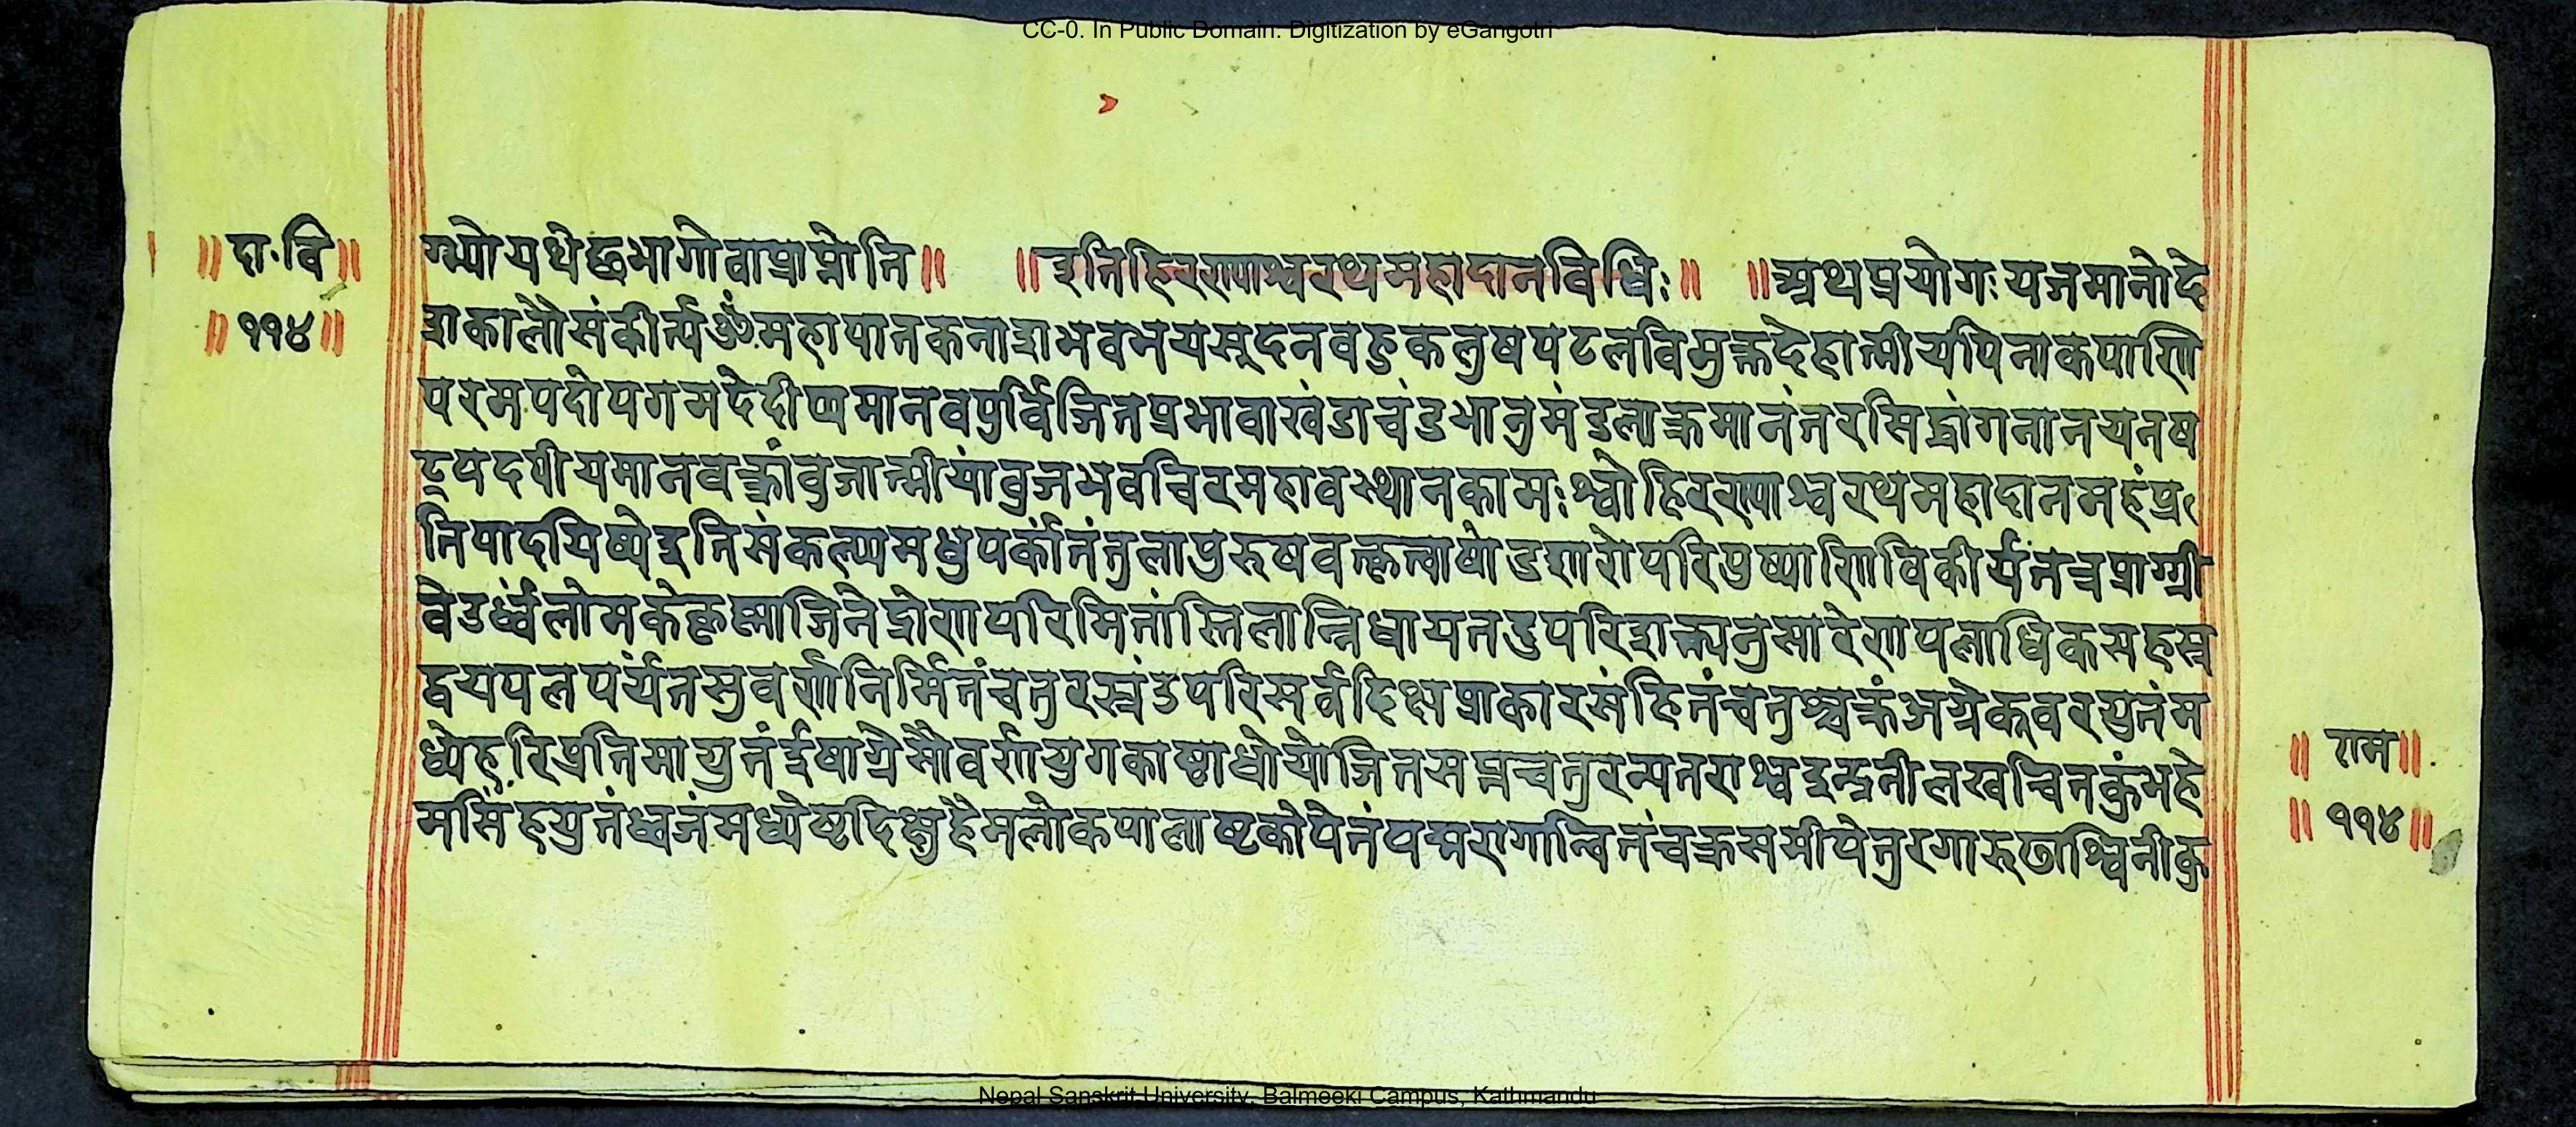 CC-0. In Public Domain. Digitization by eGangotri
॥ दा॰वि ॥
॥ ११४ ॥
ग्भ्यो यथेछभागो वा प्राप्नोति ॥ ॥ इति हिरण्याश्वरथमहादानविधिः ॥ ॥ अथ प्रयोगः यजमानो दे
शकालौ संकीर्त्य ॐ महापातकनाशभवभयसूदनवहुकलुषपटलविमुक्तदेहात्मीयपिनाकपाणि
परमपदोपगमदेदीप्यमानवपुर्विजितप्रभावाखंडाचंडभानुमंडलाक्रमानंतरसिद्धांगनानयनष
ट्पदपीयमानवक्त्रांवुजात्मीयांवुजभवचिरमहावस्थानकामः श्वो हिरण्याश्वरथमहादानमहं प्र
तिपादयिष्ये इति संकल्प्य मधुपर्कांतं तुलापुरुषवत्कृत्वा षोडशारोपरि पुष्पाणि विकीर्य तत्र प्राग्ग्री
वे उर्ध्वलोमके कृष्णाजिने द्रोणपरिमितांस्तिलान्निधाय तदुपरि शक्त्यनुसारेण पलाधिकसहस्र
द्वयपलपर्यंतसुवर्णनिर्मितं चतुरस्रं उपरि सर्वदिक्षु प्राकारसंहितं चतुश्चक्रं अग्रे कूवरयुतं म
ध्ये हरिप्रतिमायुतं ईषाग्रे सौवर्णयुगकाष्ठाधोयोजितसप्तचतुरन्यतराश्व इन्द्रनीलखचितकुंभहे
मसिंहयुतं ध्वजं मध्येष्टदिक्षु हैमलोकपालाष्टकोपेतं पद्मरागान्वितं चक्रसमीपे तुरगारुढाश्विनीकु
॥ राम ॥
॥ ११४ ॥
Nepal Sanskrit University, Balmeeki Campus, Kathmandu